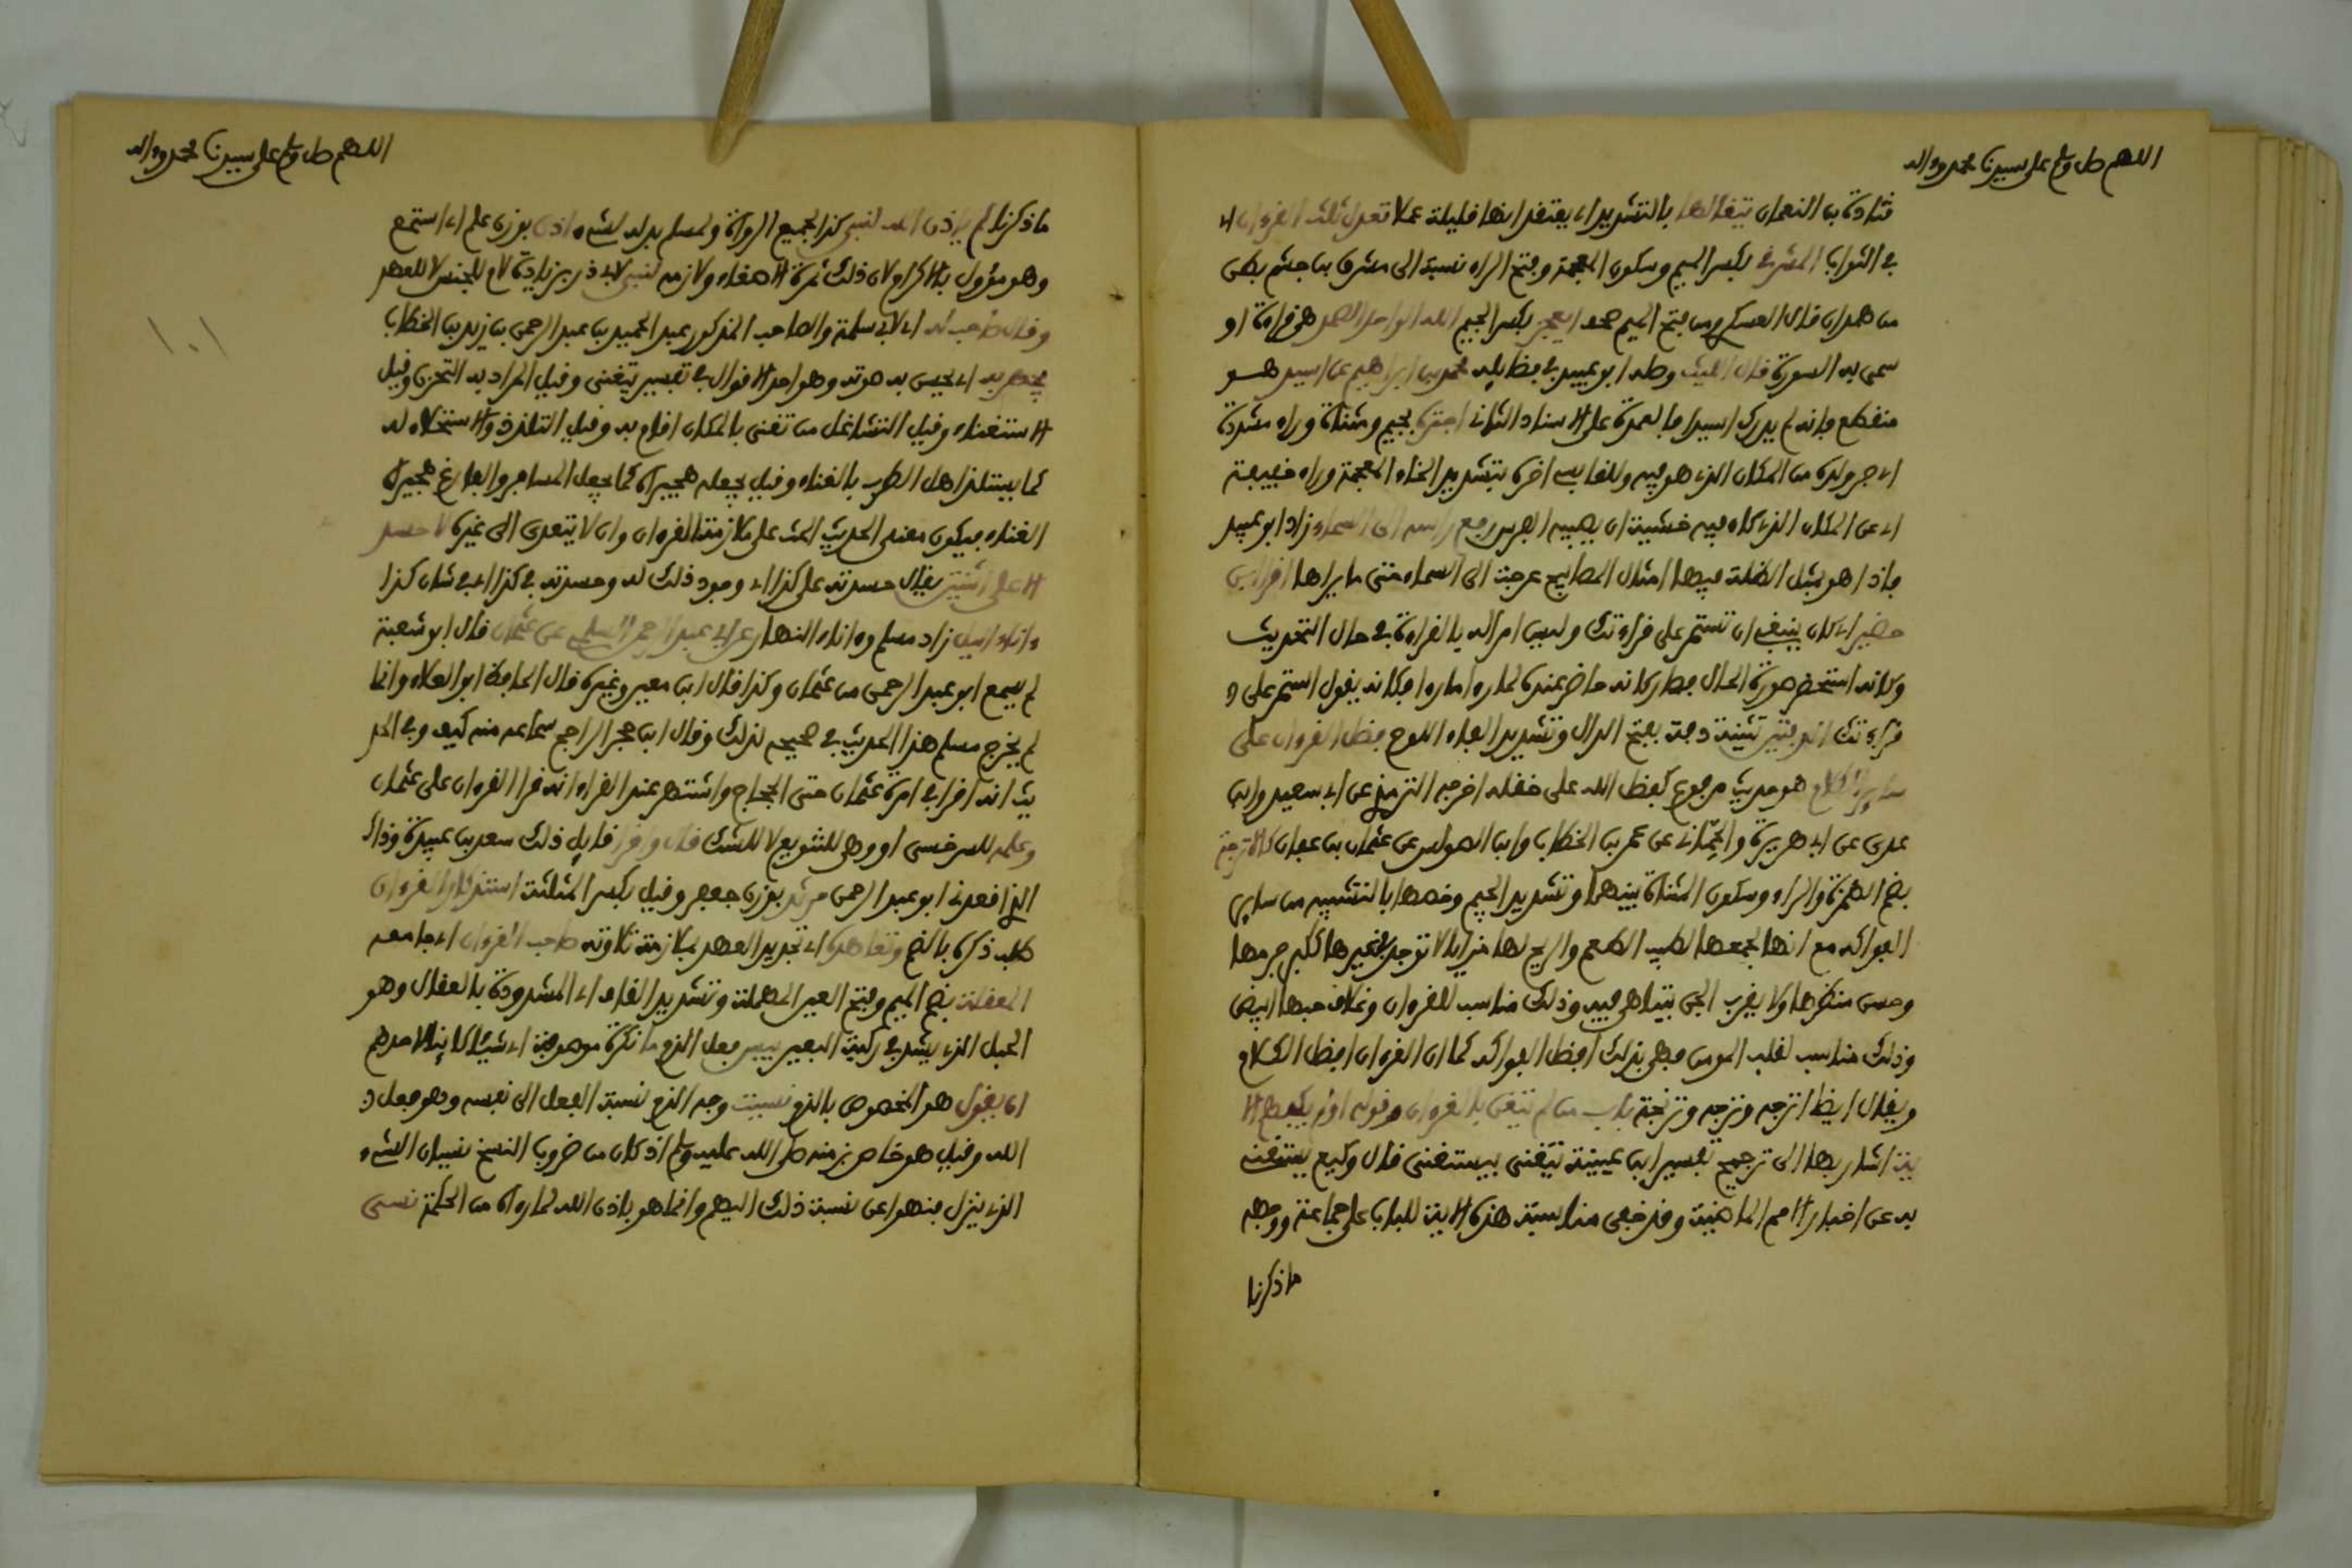 اللهم صل وسلم على سيدنا محمد وءاله
قتادة بن النعمان يتقالها بالتشديد أي يعتقد انها قليلة عملا تعدل ثلث القرءان ا
في الثواب المشرقي بكسر الميم وسكون المعجمة وفتح الراء نسبة الى مشرق بن جشم بطن
من همدان قال العسكري من فتح الميم صحف ايعجز بكسر الجيم الله الواحد الصمد هي قراءة او
سمى به السورة قال الليث وصله ابو عبيد في فضايله محمد بن ابراهيم عن اسيد هو
منقطع فانه لم يدرك اسيدا فالعمدة على الاسناد الثاني اجتره بجيم ومثناة وراء مشددة
اي جر ولده من المكان الذي هو فيه وللقابسي اخره بتشديد الخاء المعجمة وراء خفيفة
اي عن المكان الذي كان فيه خشية ان يصيبه الفرس رفع راسه الى السماء زاد ابو عبيد
فاذا هو بمثل الظلة فيها امثال المصابيح عرجت الى السماء حتى ما يراها اقرا يابن
حضير اي كان ينبغي ان تستمر على قراءتك وليس امرا له بالقراءة في حال التحديث
وكانه استحضر صورة الحال فصار كانه حاضر عنده لما راه ما راه فكانه يقول استمر على
قراءتك الدفتين تثنية دفة بفتح الدال وتشديد الفاء اللوح فضل القرءان على
ساير الكلام هو حديث مرفوع كفضل الله على خلقه اخرجه الترمذي عن ابي سعيد وابن
عدي عن ابي هريرة والحماني عن عمر بن الخطاب وابن الضريس عن عثمان بن عفان كالاترجة
بضم الهمزة والراء وسكون المثناة بينهما وتشديد الجيم وخصها بالتشبيه من ساير
الفواكه مع انها يجمعها الطيب الطعم والريح لها مزايا لا توجد في غيرها ككبر جرمها
وحسن منظرها ولا يقرب الجن بيتا هي فيه وذلك مناسب للقرءان وغلاف حبها ابيض
وذلك مناسب لقلب المومن فهي بذلك افضل الفواكه كما ان القرءان افضل الكلام
ويقال ايضا اترجه وترجه وترنجة باب من لم يتغن بالقرءان وقوله اولم يكفهم الا
ية اشار بها الى ترجيح تفسير ابن عيينة يتغنى بيستغنى قال وكيع يستغنى
به عن اخبار الامم الماضية وقد خفي مناسبة هذه الاية للباب على جماعة ووجهه
ماذكرنا
اللهم صل وسلم على سيدنا محمد وءاله
١٠١
ماذكرنا لم ياذن الله لنبي كذا لجميع الرواة ولمسلم بدله لشيء اذن بوزن علم اي استمع
وهو مؤول بالاكرام لان ذلك ثمرة الاصغاء ولازمه لنبي لابي ذر بزيادة لام للجنس لا للعهد
وقال صاحب له اي لابي سلمة والصاحب المذكور عبد الحميد بن عبد الرحمن بن زيد بن الخطاب
يجهر به اي يحسن به صوته وهو احد الاقوال في تفسير يتغنى وقيل المراد به التحزن وقيل
الاستغناء وقيل التشاغل من تغنى بالمكان اقام به وقيل التلذذ والاستحلاء له
كما يستلذ اهل الطرب بالغناء وقيل يجعله هجيراه كما يجعل المسافر والفارغ هجيراه
الغناء فيكون معنى الحديث الحث على ملازمة القرءان وان لا يتعدى الى غيره لا حسد
الا على اثنتين يقال حسدته على كذا اي وجود ذلك له وحسدته في كذا اي في شان كذا
ءاناء الليل زاد مسلم وءاناء النهار عن ابي عبد الرحمن السلمي عن عثمان قال ابو شعبة
لم يسمع ابو عبد الرحمن من عثمان وكذا قال ابن معين وغيره قال الحافظ ابو العلاء وانما
لم يخرج مسلم هذا الحديث في صحيحه لذلك وقال ابن حجر الراجح سماعه منه كيف وفي الحد
يث انه اقرا في امرة عثمان حتى الحجاج واشتهر عند القراء انه قرا القرءان على عثمان
وعلمه للسرخسي او وهي للتنويع لا للشك قال واقرا قايل ذلك سعد بن عبيدة وذاك
الذي اقعدني ابو عبد الرحمن مرثد بوزن جعفر وقيل بكسر المثلثة استذكار القرءان
طلب ذكره بالضم وتعاهده اي تجديد العهد بملازمة تلاوته صاحب القرءان اي جامعه
المعقلة بضم الميم وفتح العين المهملة وتشديد القاف اي المشدودة بالعقال وهو
الحبل الذي يشد في ركبة البعير بيس فعل الذم ما نكرة موصوفة اي شيئا كاينا لاحدهم
ان يقول هو المخصوص بالذم نسيت وجه الذم نسبة الفعل الى نفسه وهو فعل
الله وقيل هو خاص بزمنه صلى الله عليه وسلم اذ كان من ضروب النسخ نسيان الشيء
الذي ينزل فنهوا عن نسبة ذلك اليهم وانما هو باذن الله لما راه من الحكمة نسى